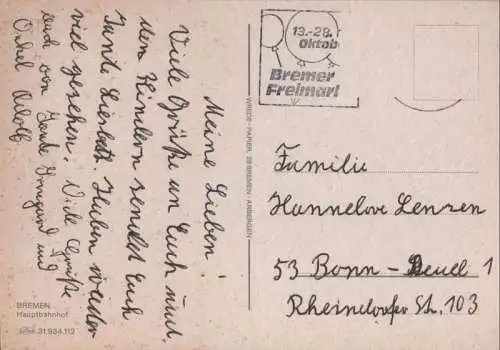 Meine Lieben!
Viele Grüße an Euch und
den Kindern sendet Euch
Tante Liesbeth. Haben wieder
viel gesehen. Viele Grüße
auch von Tante Irmgard und
Onkel Adolf
BREMEN
Hauptbahnhof
31.934.112
WREDE - PAPIER, 28 BREMEN / ARBERGEN
13.-28.
Oktob
Bremer
Freimarkt
Familie
Hannelore Lenzen
53 Bonn - Beuel 1
Rheindorfer St. 103